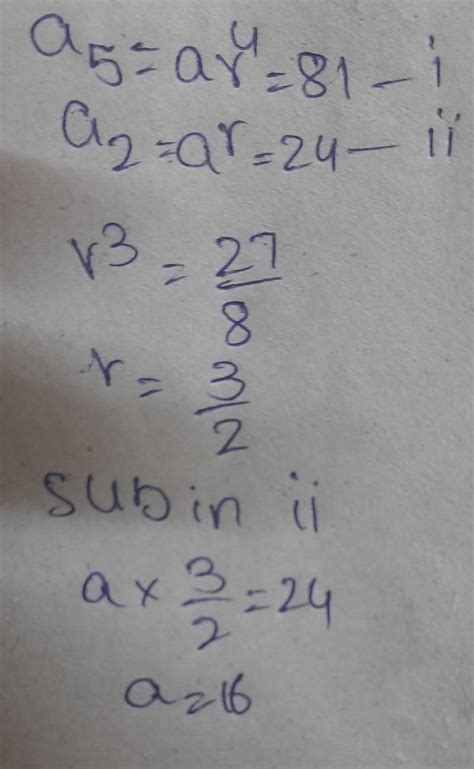 a₅ = ar⁴ = 81 - i
a₂ = ar = 24 - ii
r³ = 27/8
r = 3/2
sub in ii
a × 3/2 = 24
a = 16